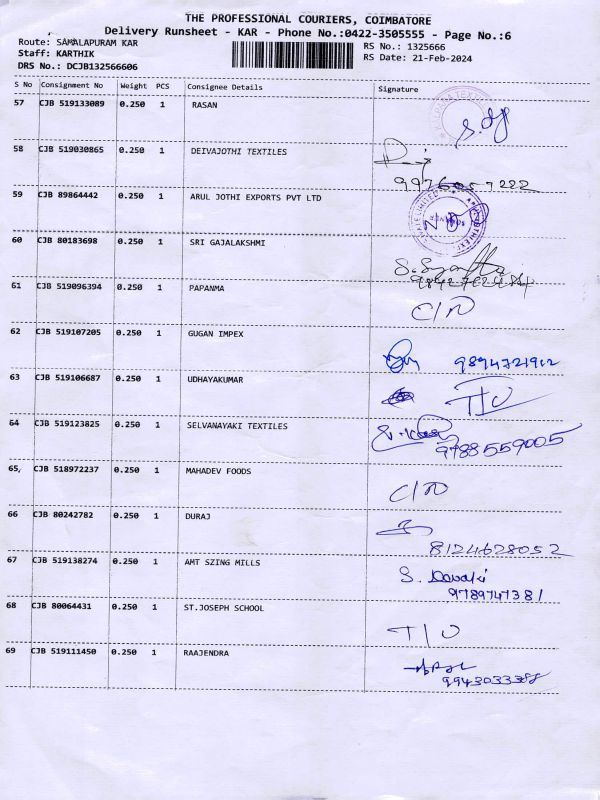 THE PROFESSIONAL COURIERS, COIMBATORE
Delivery Runsheet - KAR - Phone No.:0422-3505555 - Page No.:6
Route: SAMALAPURAM KAR
Staff: KARTHIK
DRS No.: DCJB132566606
RS No.: 1325666
RS Date: 21-Feb-2024
S No Consignment No Weight PCS Consignee Details Signature
57 CJB 519133089 0.250 1 RASAN
58 CJB 519030865 0.250 1 DEIVAJOTHI TEXTILES
9976057222
59 CJB 89864442 0.250 1 ARUL JOTHI EXPORTS PVT LTD
60 CJB 80183698 0.250 1 SRI GAJALAKSHMI
61 CJB 519096394 0.250 1 PAPANMA
C/N
62 CJB 519107205 0.250 1 GUGAN IMPEX
9894721912
63 CJB 519106687 0.250 1 UDHAYAKUMAR
T/O
64 CJB 519123825 0.250 1 SELVANAYAKI TEXTILES
9788559005
65, CJB 518972237 0.250 1 MAHADEV FOODS
C/N
66 CJB 80242782 0.250 1 DURAJ
8124628052
67 CJB 519138274 0.250 1 AMT SZING MILLS
S. Devaki
9789747381
68 CJB 80064431 0.250 1 ST.JOSEPH SCHOOL
T/O
69 CJB 519111450 0.250 1 RAAJENDRA